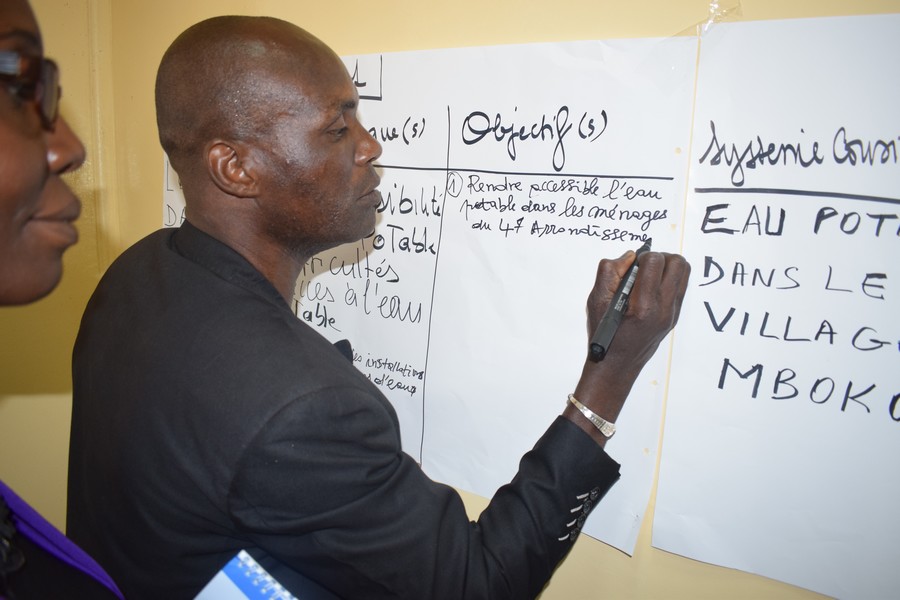 1
que(s)
sibilité
poTable
ficultés
ces à l'eau
table
les installations
d'eaux
Objectif(s)
① Rendre accessible l'eau
potable dans les ménages
du 4e Arrondisseme
Systemie
EAU POT
DANS LE
VILLAG
MBOKO